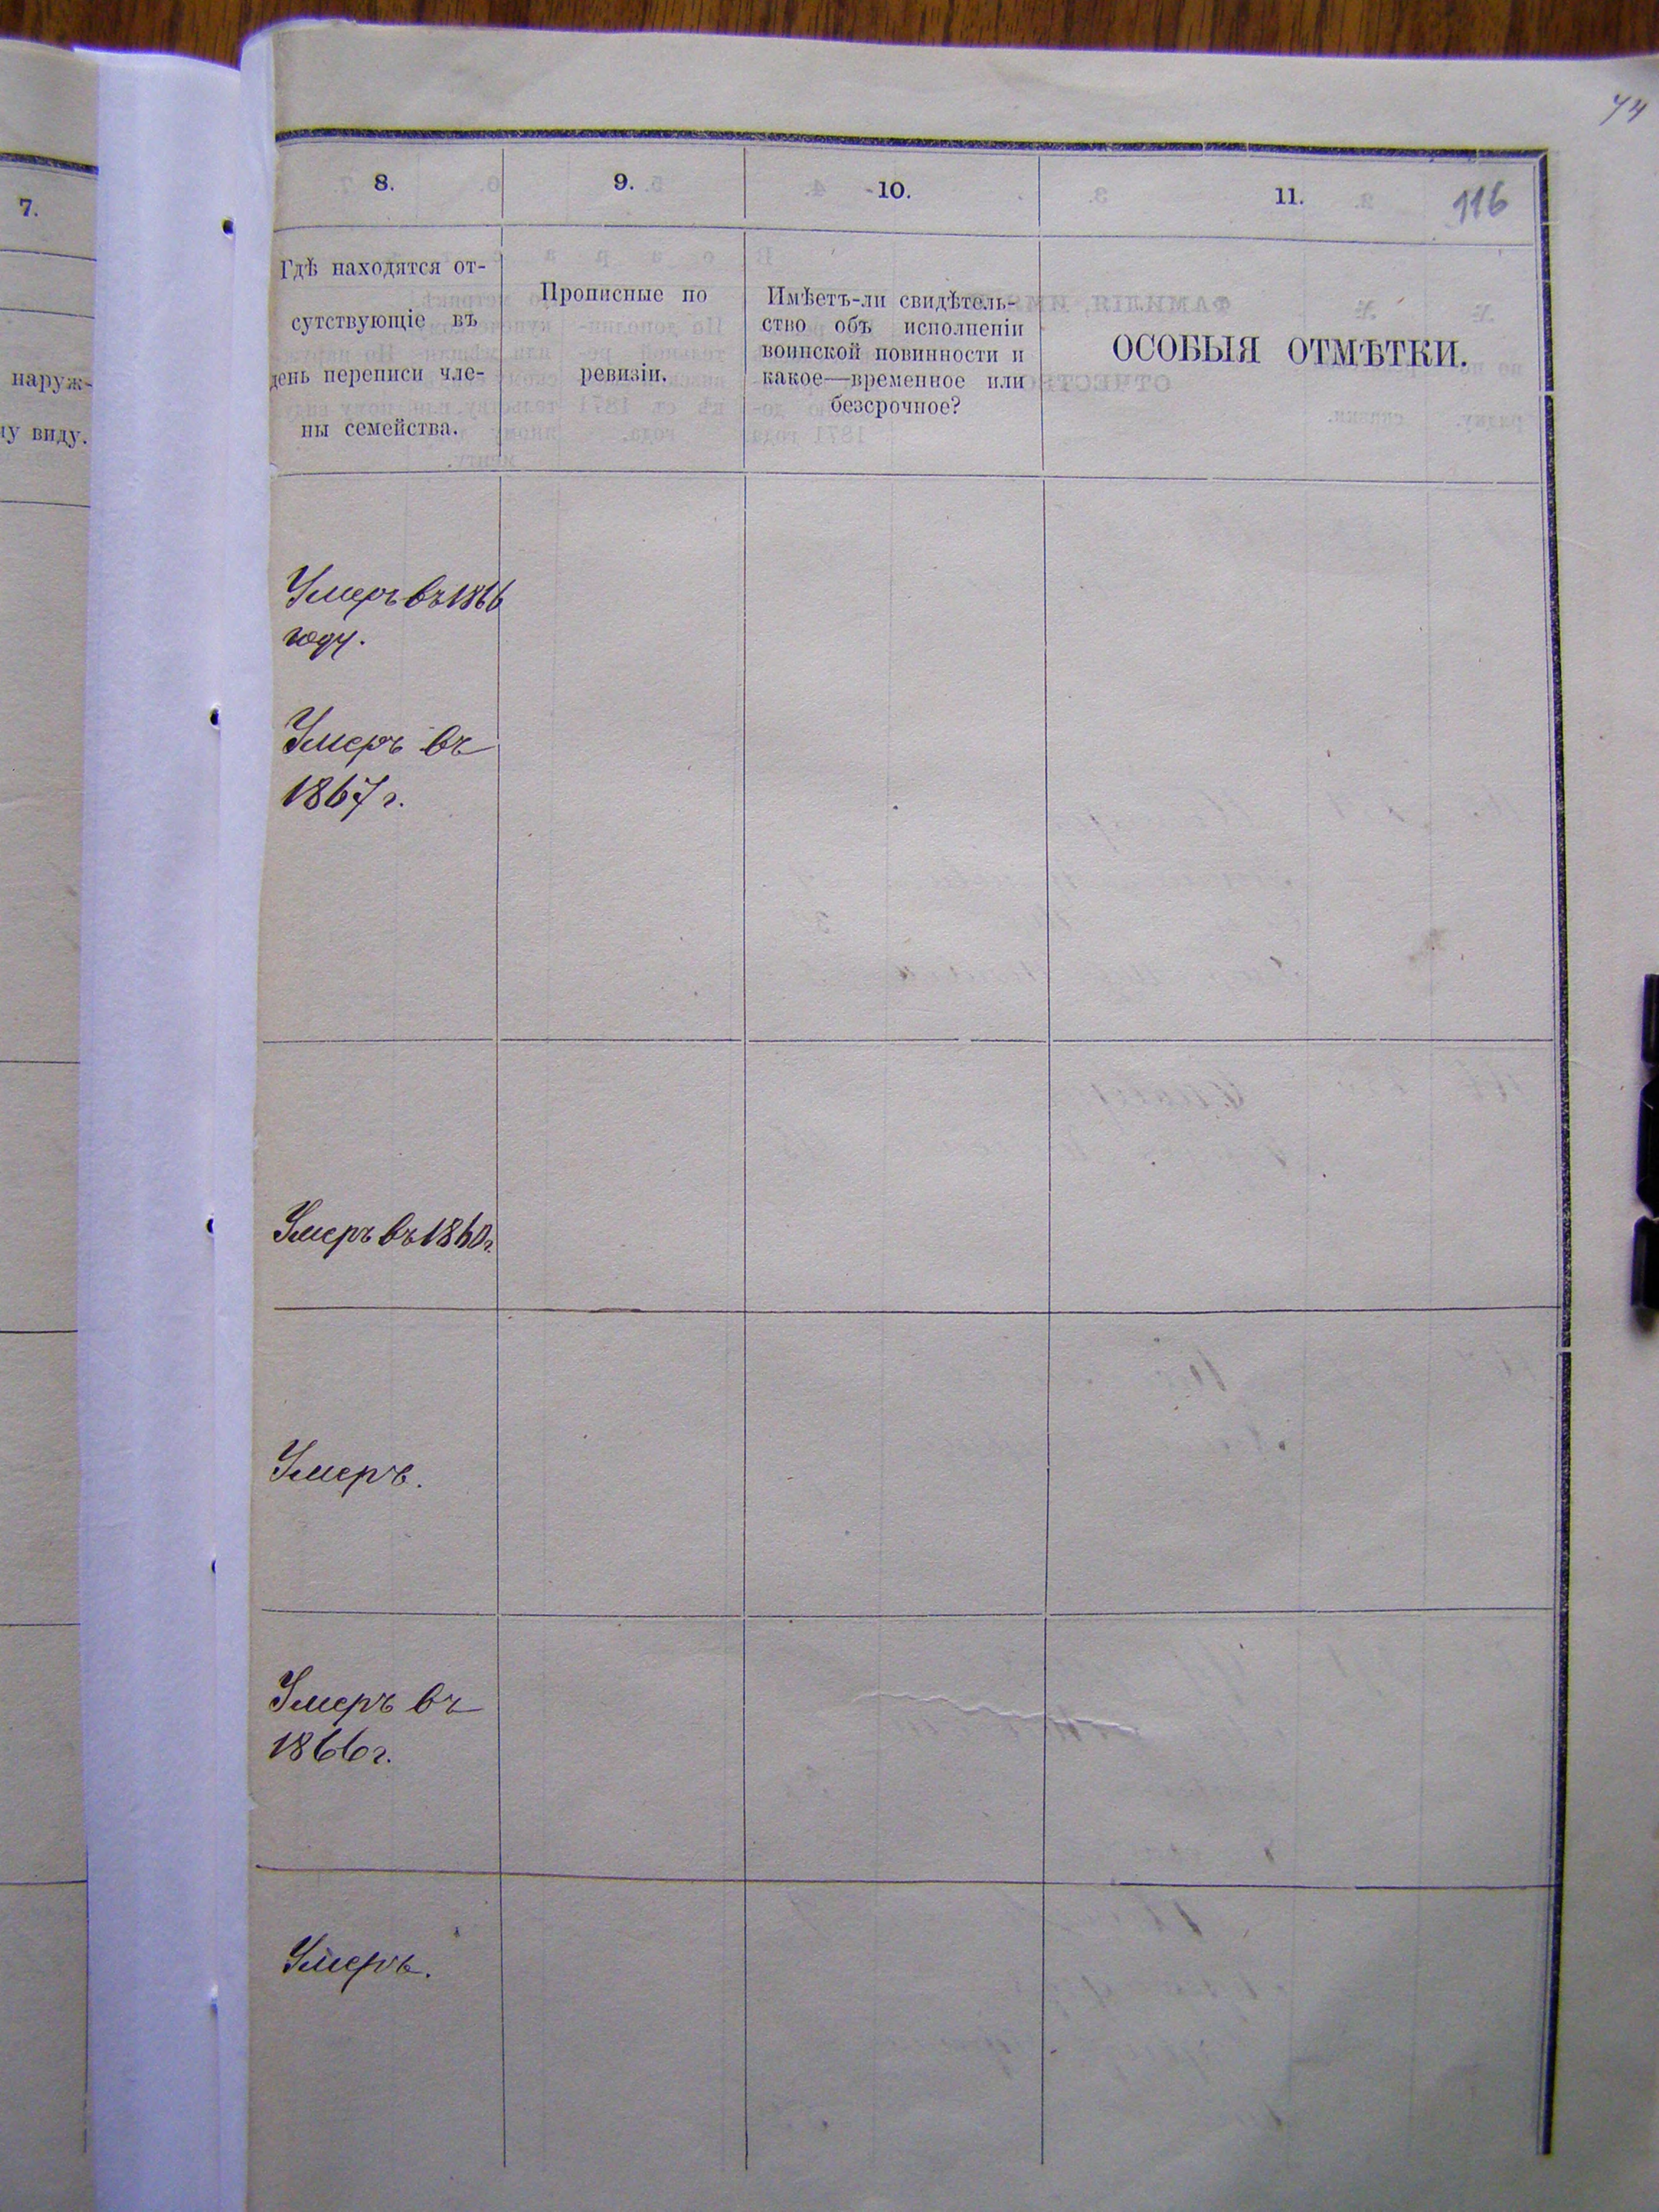 74
7.
наруж-
му виду.
8.
9.
10.
11.
116
Гдѣ находятся от-
сутствующіе въ
день переписи чле-
ны семейства.
Прописные по
ревизіи.
Имѣетъ-ли свидѣтель-
ство объ исполненіи
воинской повинности и
какое—временное или
безсрочное?
ОСОБЫЯ ОТМѢТКИ.
Умеръ въ 1866
году.
Умеръ въ
1867 г.
Умеръ въ 1860 г.
Умеръ.
Умеръ въ
1866 г.
Умеръ.